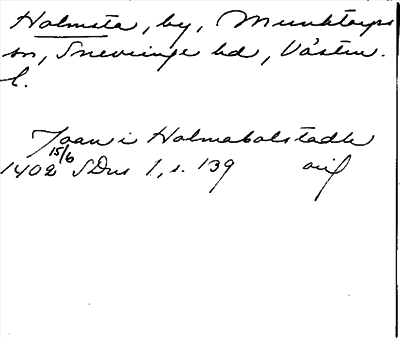 Holmsta, by, Munktorps
sn, Snevringe hd, Västm.
l.
Joan i Holmabolstadh
15/6
1402 SDns 1, s. 139 orig